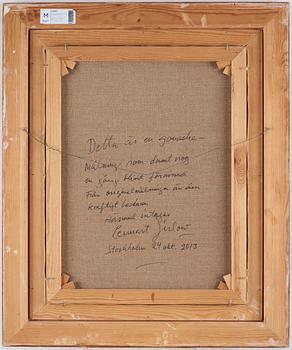 Detta är en gouache-
målning som dumt nog
en gång blivit förminskad
Från originalmålningen är den
kraftigt beskuren
intygar
Lennart Jirlow
Stockholm 24 okt. 2013
M